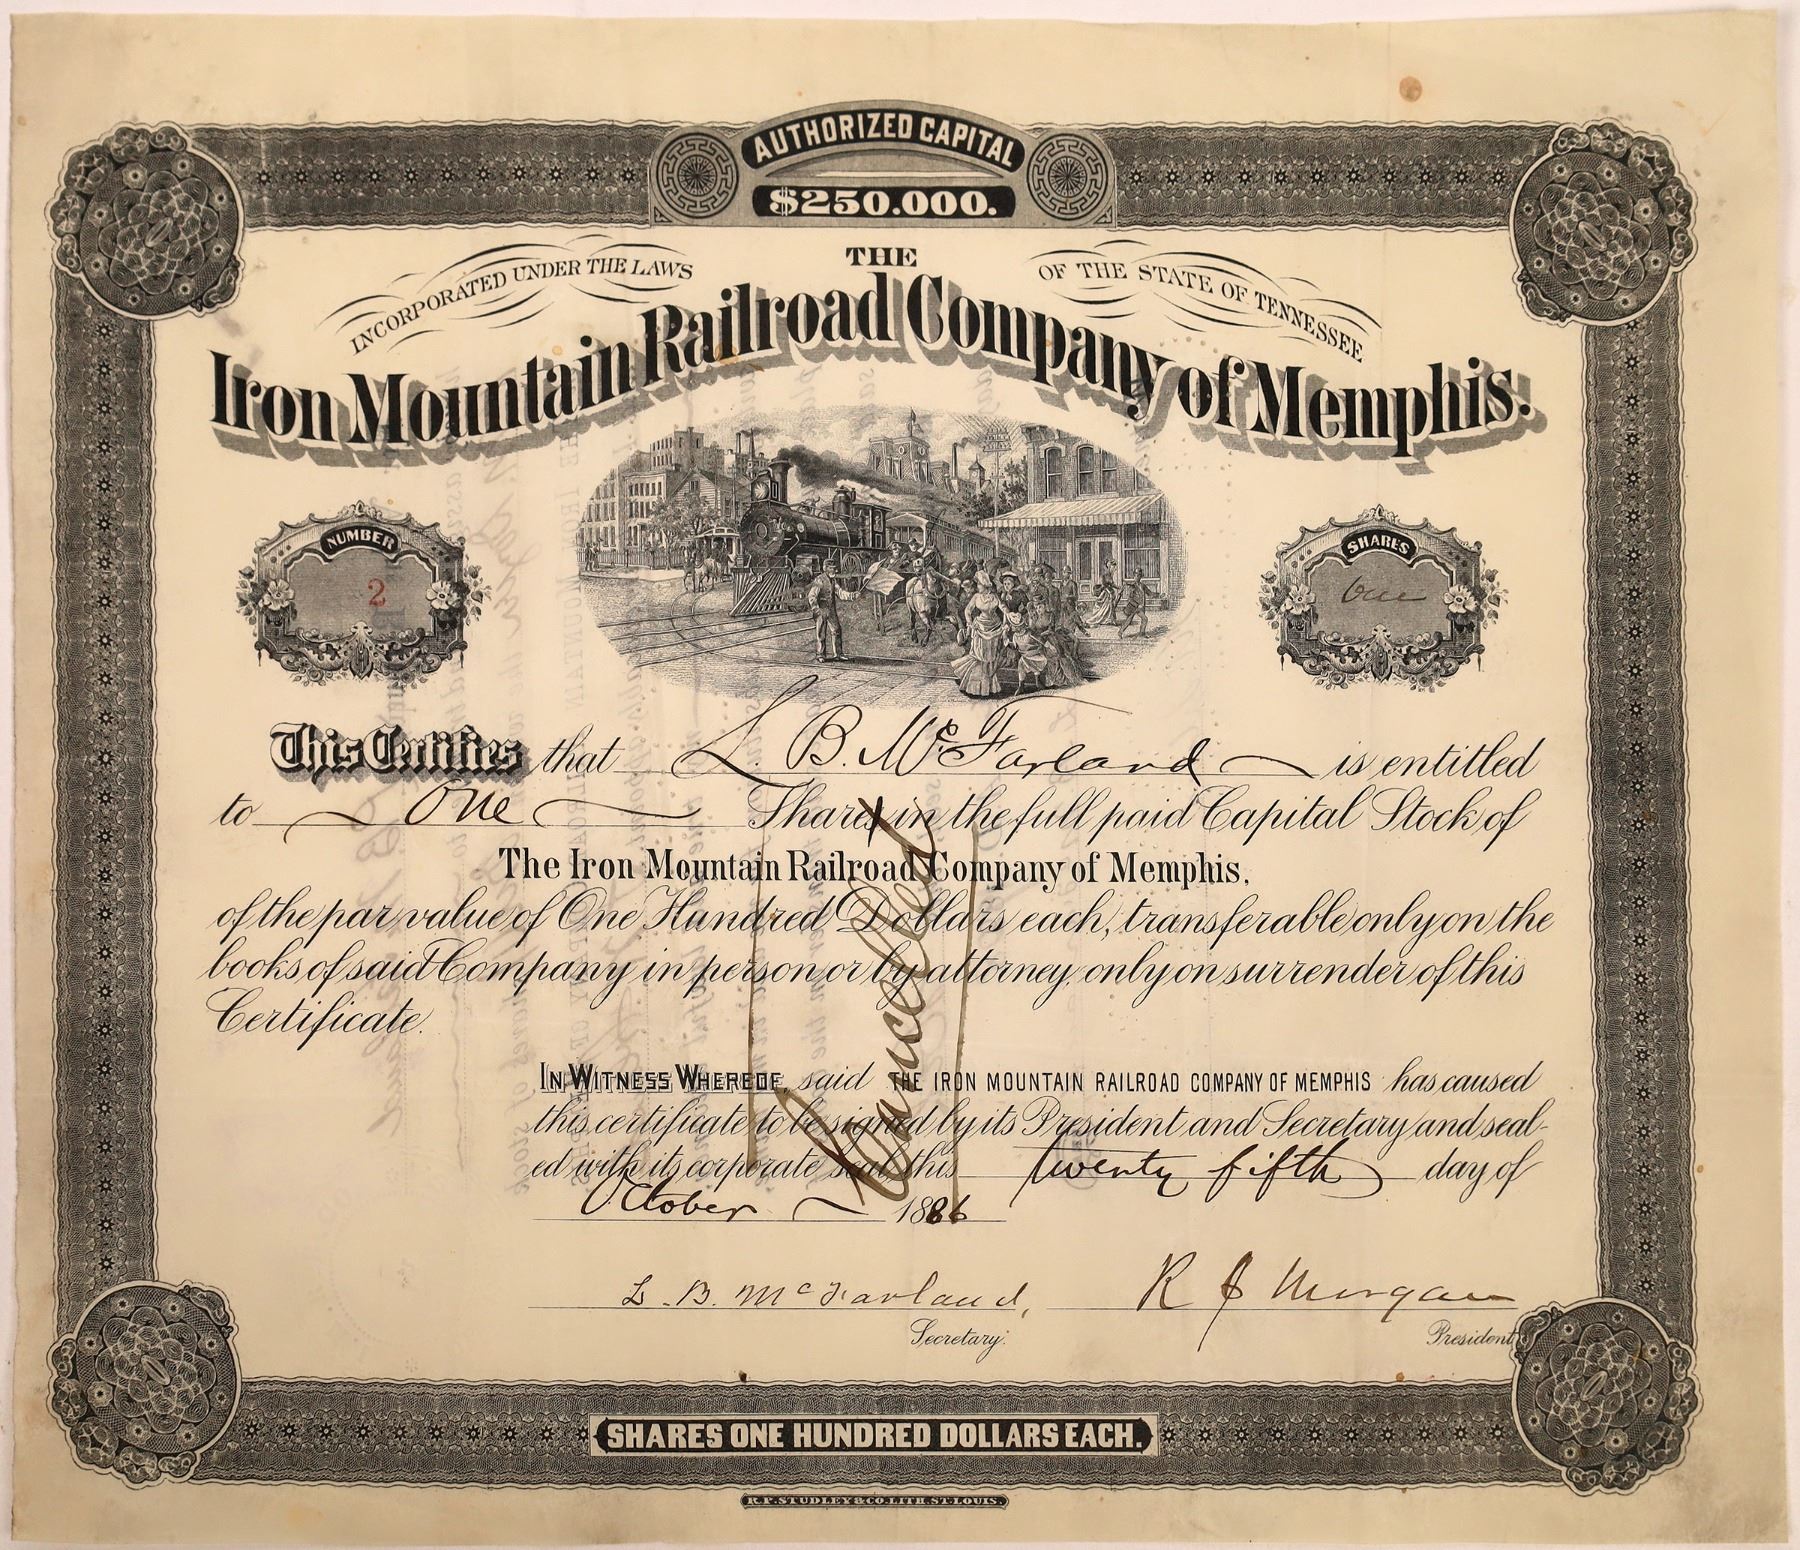 AUTHORIZED CAPITAL
$250.000.
INCORPORATED UNDER THE LAWS OF THE STATE OF TENNESSEE
THE
Iron Mountain Railroad Company of Memphis.
NUMBER
2
SHARES
One
This Certifies that L. B. McFarland is entitled
to One Shares in the full paid Capital Stock of
The Iron Mountain Railroad Company of Memphis,
of the par value of One Hundred Dollars each, transferable only on the
books of said Company in person or by attorney only on surrender of this
Certificate.
Cancelled
IN WITNESS WHEREOF, said THE IRON MOUNTAIN RAILROAD COMPANY OF MEMPHIS has caused
this certificate to be signed by its President and Secretary and seal-
ed with its corporate seal, this twenty fifth day of
October 1886
L. B. McFarland, R J Morgan
Secretary. President
SHARES ONE HUNDRED DOLLARS EACH.
R.P. STUDLEY & CO. LITH. ST. LOUIS.